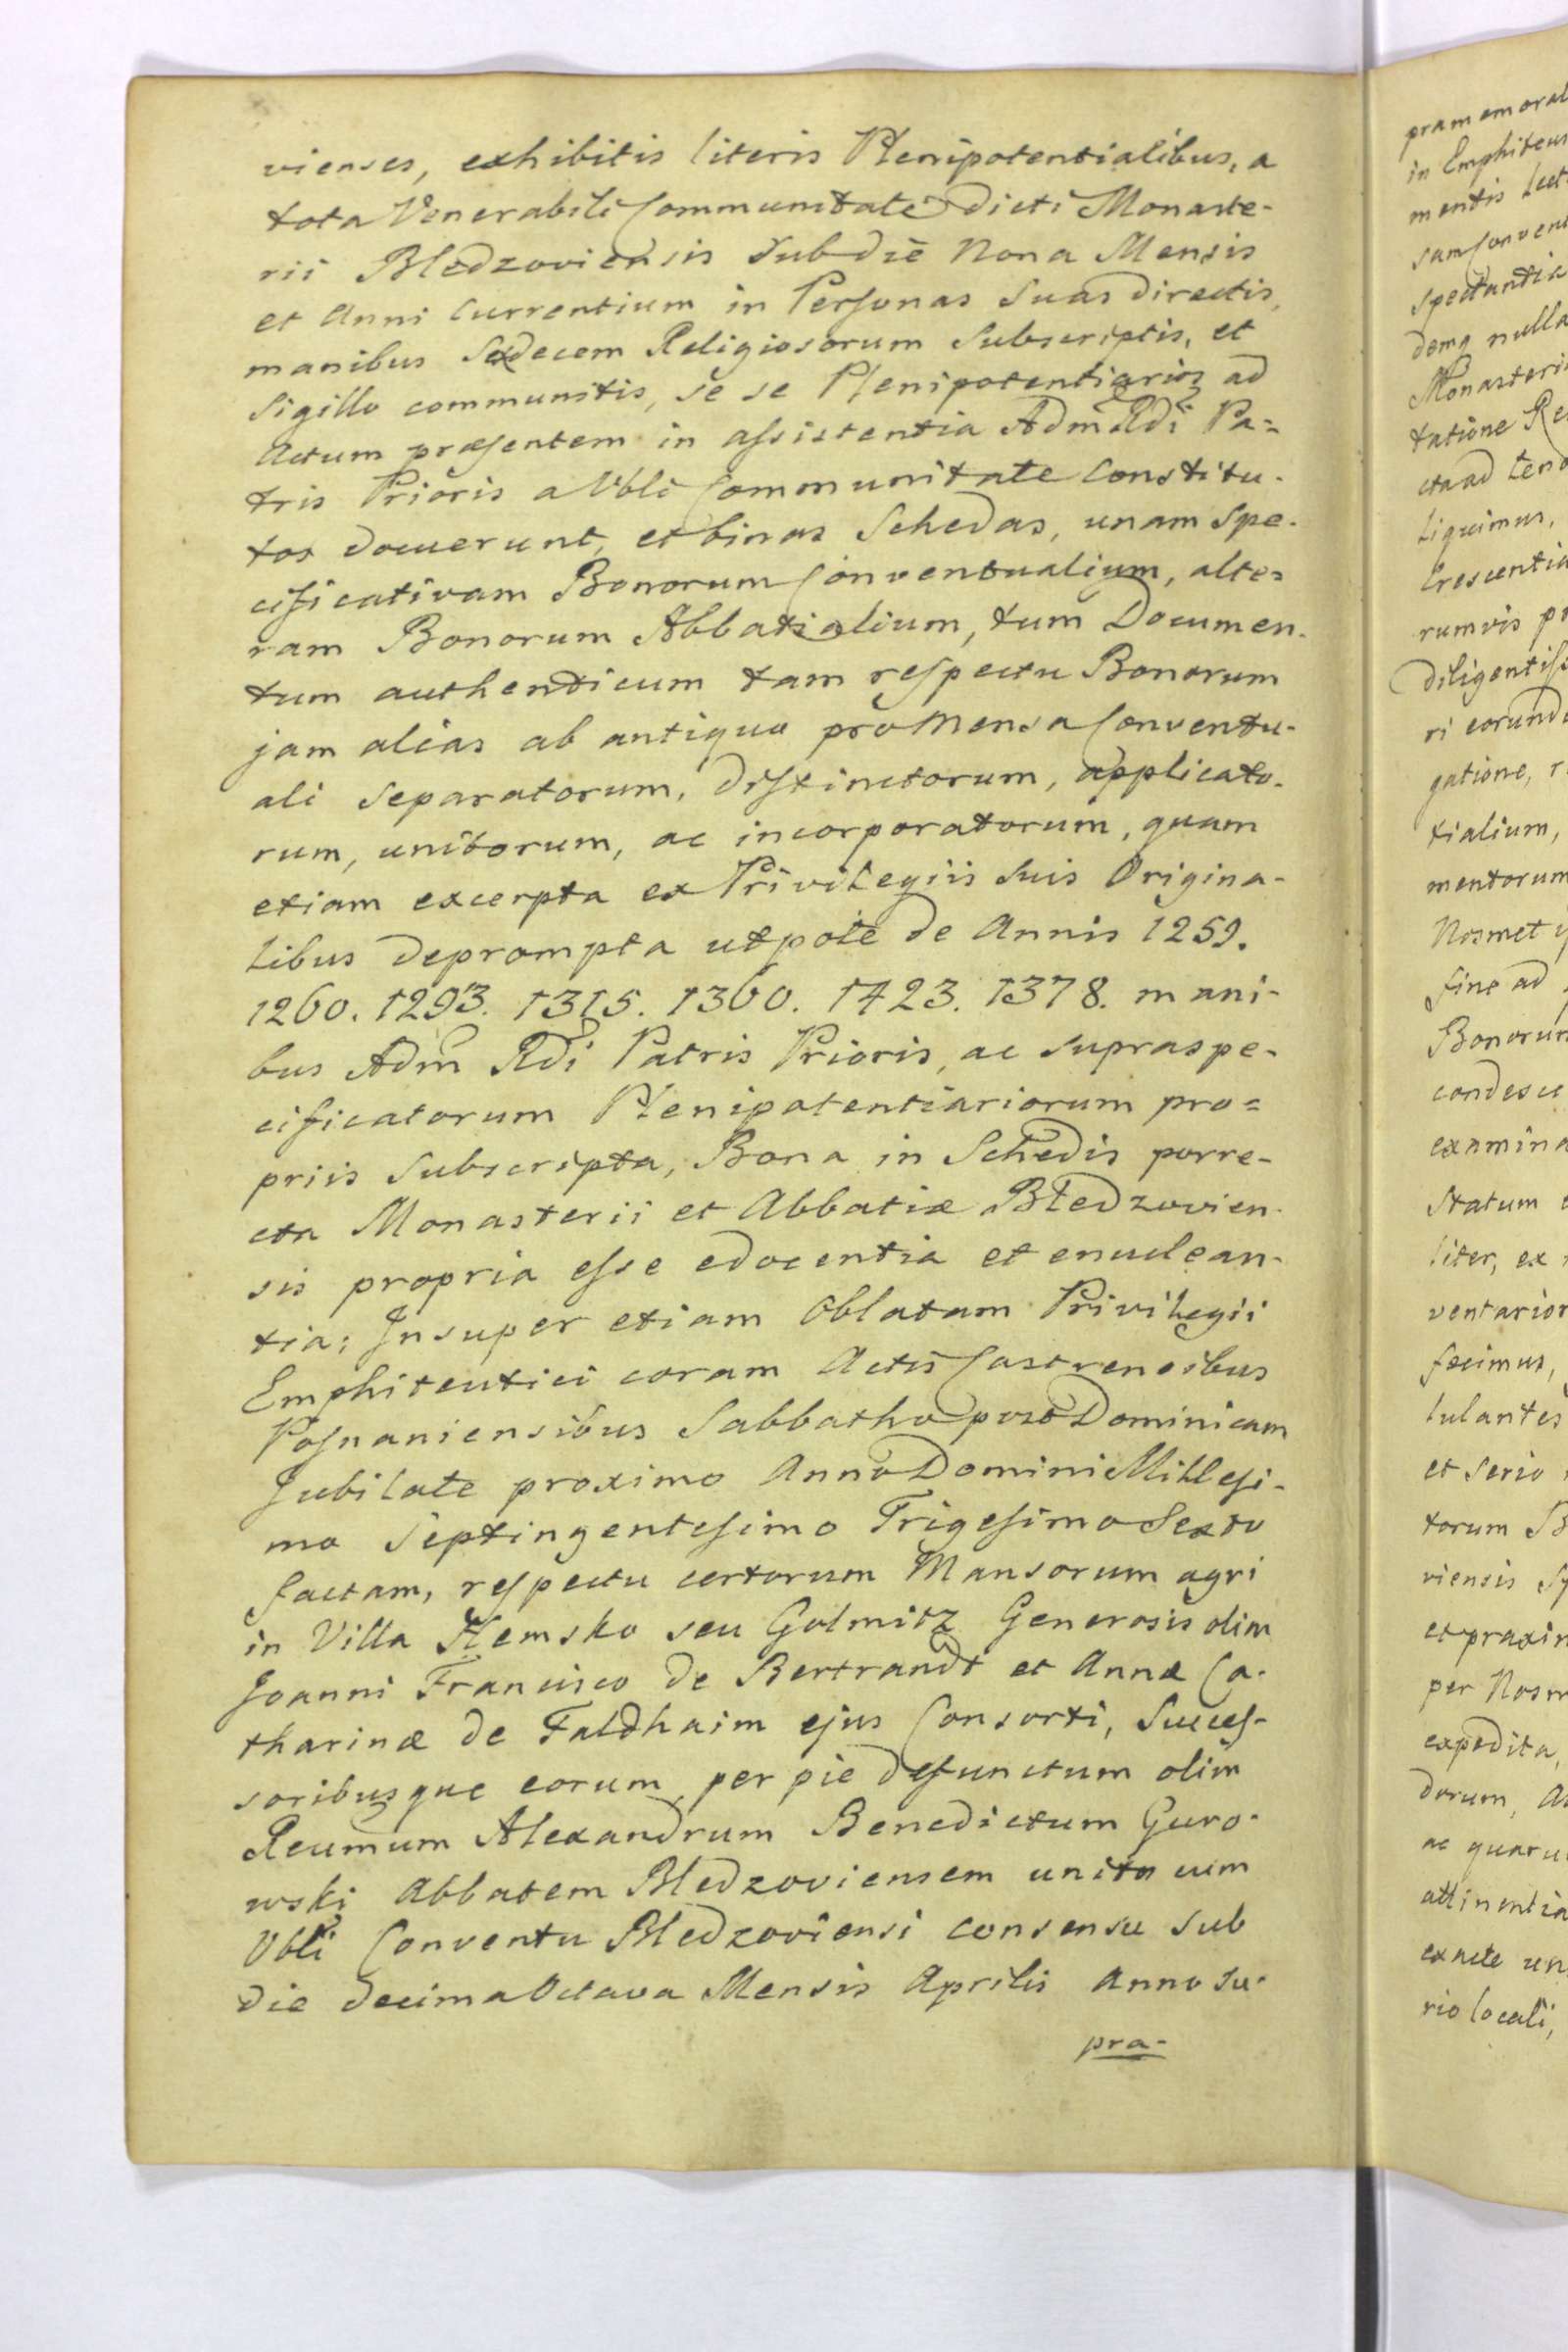 vienses, exhibitis literis Plenipotentialibus, a
tota Venerabili Communitate dicti Monaste-
rii Bledzoviensis sub die Nona Mensis
et Anni currentium in Personas suas directis,
manibus Sexdecem Religiosorum Subscriptis, et
Sigillo communitis, se se Plenipotentiarios ad
Actum præsentem in assistentia Adm Rdi Pa=
tris Prioris a Vbli Communitate Constitu-
tos docuerunt, et binas Schedas, unam Spe-
cificativam Bonorum Conventualium, alte=
ram Bonorum Abbatialium, tum Documen-
tum authenticum tam respectu Bonorum
jam alias ab antiquo pro Mensa Conventu-
ali separatorum, distinctorum, applicato-
rum, unitorum, ac incorporatorum, quam
etiam excerpta ex Privilegiis suis Origina-
libus deprompta utpote de Annis 1259.
1260. 1293. 1315. 1360. 1423. 1378. mani-
bus Adm Rdi Patris Prioris, ac supraspe-
cificatorum Plenipotentiariorum pro=
priis subscripta, Bona in Schedis porre-
cta Monasterii et Abbatiæ Bledzovien-
sis propria esse edocentia et enuclean-
tia; Insuper etiam Oblatam Privilegii
Emphiteutici coram Actis Castrensibus
Posnaniensibus Sabbatho post Dominicam
Jubilate proximo Anno Domini Millesi-
mo Septingentesimo Trigesimo Sexto
factam, respectu certorum Mansorum agri
in Villa Chemsko seu Golmitz Generosis olim
Joanni Francisco de Bertrandt et Annæ Ca-
tharinæ de Faldhaim ejus Consorti, Succes-
soribusque eorum, per pie defunctum olim
Reumum Alexandrum Benedictum Guro-
wski Abbatem Bledzoviensem unito cum
Vbli Conventu Bledzoviensi consensu sub
die decima Octava Mensis Aprilis Anno su-
pra-
pramemorat
in Emphiteus
mentis
sam Conven
spectantia
demq nulla
Monasteri
tatione Re
cta ad
liquimus,
Crescentia
rumvis
diligentiss
ri eorund
gatione,
tialium,
mentorum
Nosmet
fine ad
Bonorum
condesce
examina
statum
liter, ex
ventarior
fecimus,
lulantes
et serio
torum
viensis
et praxi
per Nosm
expedita,
dorum,
ac quaru
attinentia
exacte
rio locali,